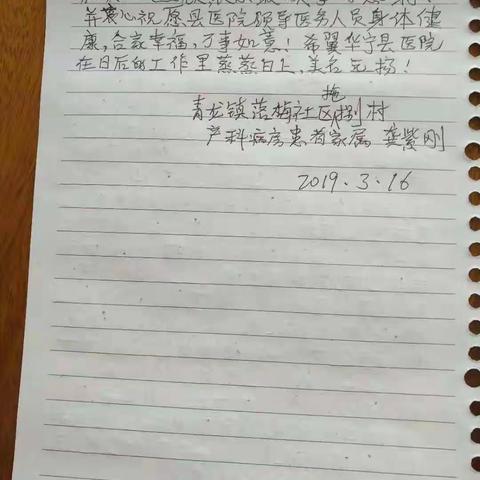 并衷心祝愿县医院领导医务人员身体健
康,合家幸福,万事如意!希冀华宁县医院
在日后的工作里蒸蒸日上,美名远扬!
青龙镇落梅社区拖捌村
产科病房患者家属 龚紫刚
2019.3.16